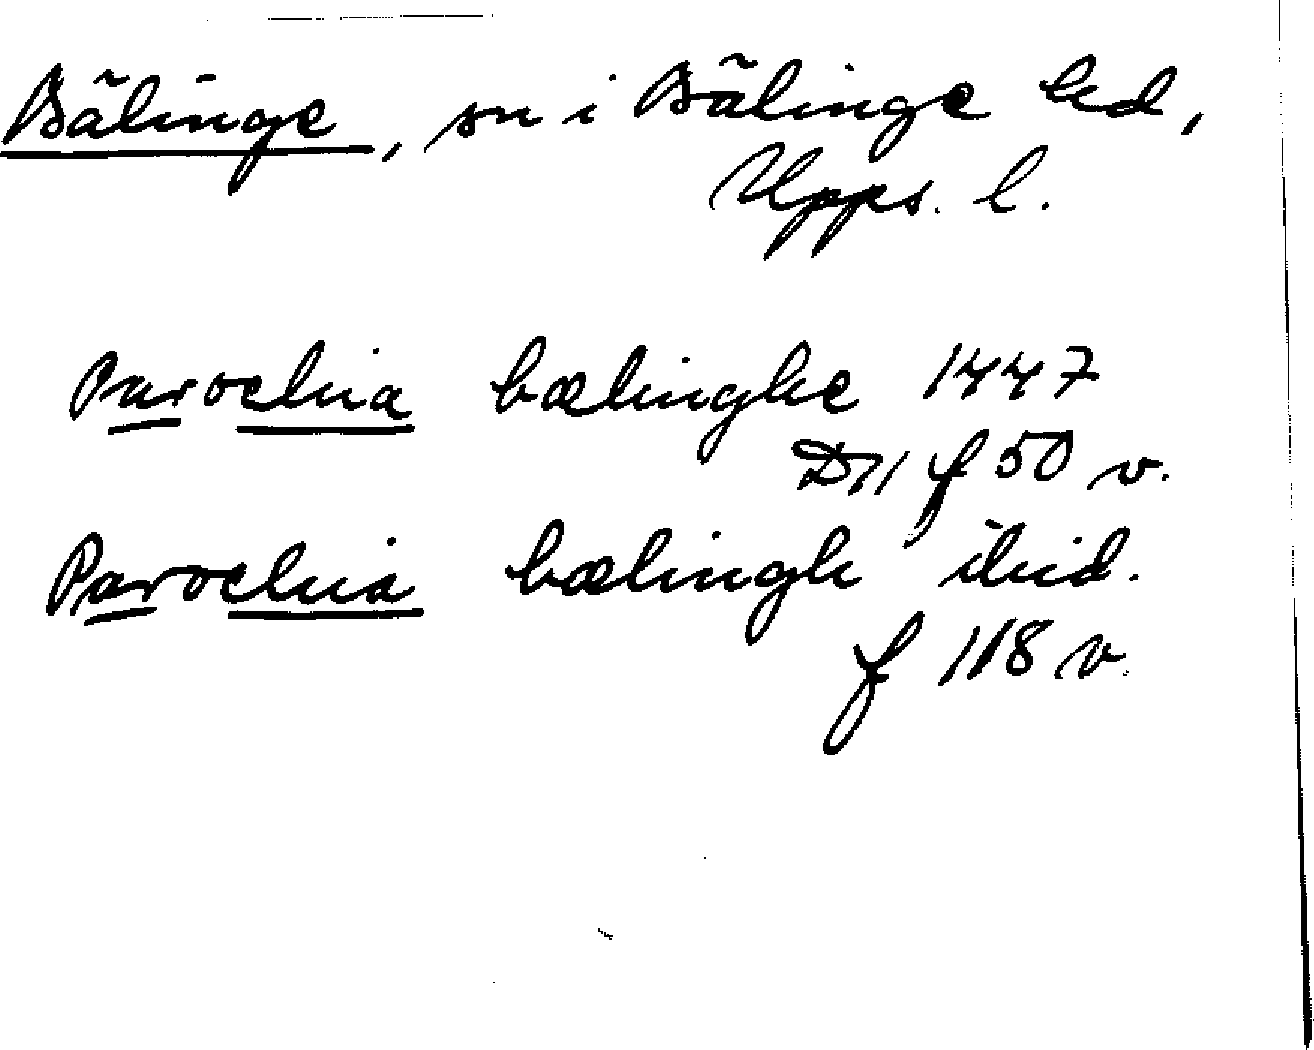 Bälinge, sn i Bälinge hd,
Upps. l.
Parochia bælinghe 1447
D11 f 50 v.
Parochia bælingh ibid.
f 118 v.